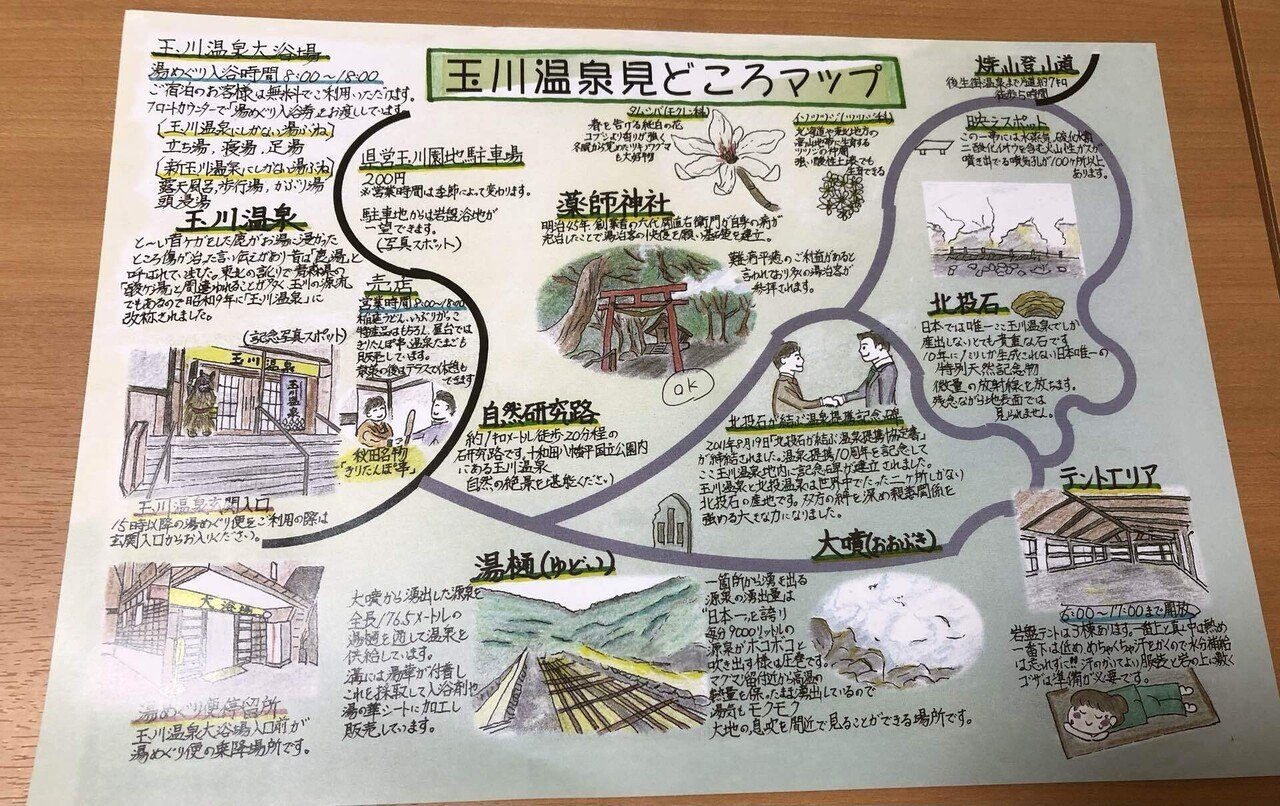 玉川温泉見どころマップ
玉川温泉大浴場
湯めぐり入浴時間8:00〜18:00
ご宿泊のお客様は無料でご利用いただけます。
フロントカウンターで「湯めぐり入浴券」お渡ししています。
(玉川温泉にしかない湯ぶね)
立ち湯、寝湯、足湯
(新玉川温泉にしかない湯ぶね)
露天風呂、歩行湯、かぶり湯
頭浸湯
玉川温泉
と〜い昔ケガをした鹿がお湯に浸かった
ところ傷が治った言い伝えがあり昔は「鹿湯」と
呼ばれていました。東北の訛りで青森県の
「酸ヶ湯」と間違われることが多く、玉川の源流
でもあるので昭和9年に「玉川温泉」に
改称されました。
(記念写真スポット)
玉川温泉
玉川温泉
玉川温泉玄関入口
15時以降の湯めぐり便をご利用の際は
玄関入口からお入りください。
大浴場
湯めぐり便停留所
玉川温泉大浴場入口前が
湯めぐり便の乗降場所です。
県営玉川園地駐車場
200円
※営業時間は季節によって変わります。
駐車地からは岩盤浴地が
一望できます。
(写真スポット)
売店
営業時間8:00〜18:00
稲庭うどん、いぶりがっこ
特産品はもちろん、屋台では
きりたんぽ串、温泉たまごも
販売しています。
散策の後はテラスで休憩も
できます
秋田名物
「きりたんぽ串」
タムシバ(モクレン科)
春を告げる純白の花
コブシより香りが強く
冬眠から覚めたツキノワグマ
も大好物
(ツツジ科)
北海道や東北地方の
高山地帯に生育する
ツツジの仲間
強い酸性土壌でも
生育できる
薬師神社
明治45年 創業者の六代 関直右衛門が自身の病が
完治したことで湯治客の快復を願い、
難病平癒のご利益があると
言われており多くの湯治客が
参拝されます。
OK
自然研究路
約1キロメートル/徒歩20分程の
研究路です。十和田八幡平国立公園内
にある玉川温泉
自然の絶景を堪能ください
北投石が結ぶ温泉提携記念碑
2011年8月19日「北投石が結ぶ温泉提携協定書」
が締結されました。温泉提携10周年を記念して
ここ玉川温泉地内に記念碑が建立されました。
玉川温泉と北投温泉は世界中でたった二ヶ所しかない
北投石の産地です。双方の絆を深め親善関係を
強める大きな力になりました。
焼山登山道
後生掛温泉まで片道約7キロ
徒歩5時間
映えスポット
この一帯には水蒸気、硫化水素
二酸化イオウを含む火山性ガスが
噴き出てる噴気孔が100ヶ所以上
あります。
北投石
日本では唯一ここ玉川温泉でしか
産出しないとても貴重な石です
10年に1ミリしか生成されない日本唯一の
特別天然記念物
微量の放射線を放ちます。
残念ながら地表面では
見られません。
テントエリア
6:00〜17:00まで開放
岩盤テントは3棟あります。一番上と真ん中は熱め
一番下は低め めちゃくちゃ汗をかくので水分補給
は忘れずに!! 汗のかいてよい服装と岩の上に敷く
ゴザは準備が必要です。
大噴(おおぶき)
一箇所から湧き出る
源泉の湧出量は
"日本一"を誇り
毎分9000リットルの
源泉がボコボコと
吹き出す様は圧巻です。
マグマ溜付近から高温の
熱量を保ったまま湧出しているので
湯気もモクモク
大地の息吹を間近で見ることができる場所です。
湯樋(ゆどい)
大噴から湧出した源泉を
全長176.5メートルの
湯樋を通して温泉を
供給しています。
溝には湯華が付着し
これを採取して入浴剤や
湯の華シートに加工し
販売しています。